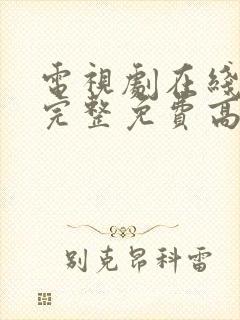 電視劇在綫
完整免費高
别克昂科雷